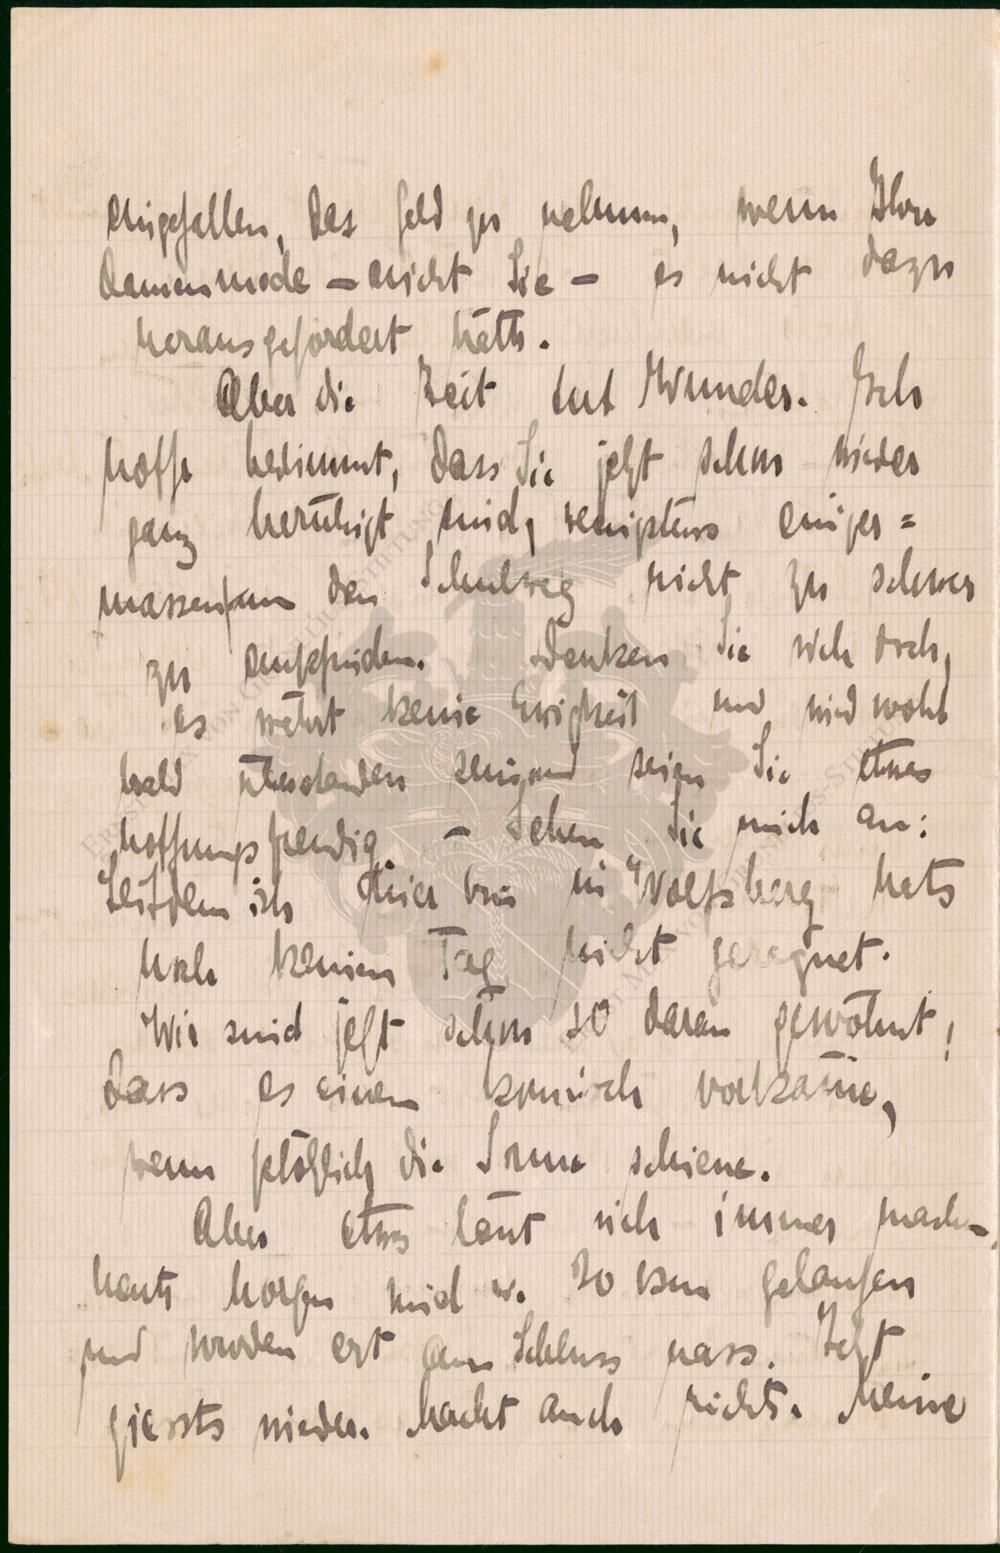 eingefallen, das Geld zu nehmen, wenn Ihre
Damenmode – nicht Sie – es nicht dazu
herausgefordert hätte.
Aber die Zeit tut Wunder. Ich
hoffe bestimmt, dass Sie jetzt schon wieder
ganz beruhigt sind, wenigstens einiger=
massen, um den Schulweg nicht zu schwer
zu empfinden. Denken Sie sich doch,
es währt keine Ewigkeit und wird wohl
bald überstanden sein und seien Sie etwas
hoffnungsfreudig – Sehen Sie mich an:
Seitdem ich hier bin in Wolfsberg hats
noch keinen Tag nicht geregnet.
Wir sind jetzt schon so daran gewöhnt,
dass es einem komisch vorkäme,
wenn plötzlich die Sonne schiene.
Aber etwas lässt sich immer machen,
heute morgen sind wir 20 km gelaufen
und wurden erst am Schluss nass. Jetzt
giessts wieder. Macht auch nichts. Meine